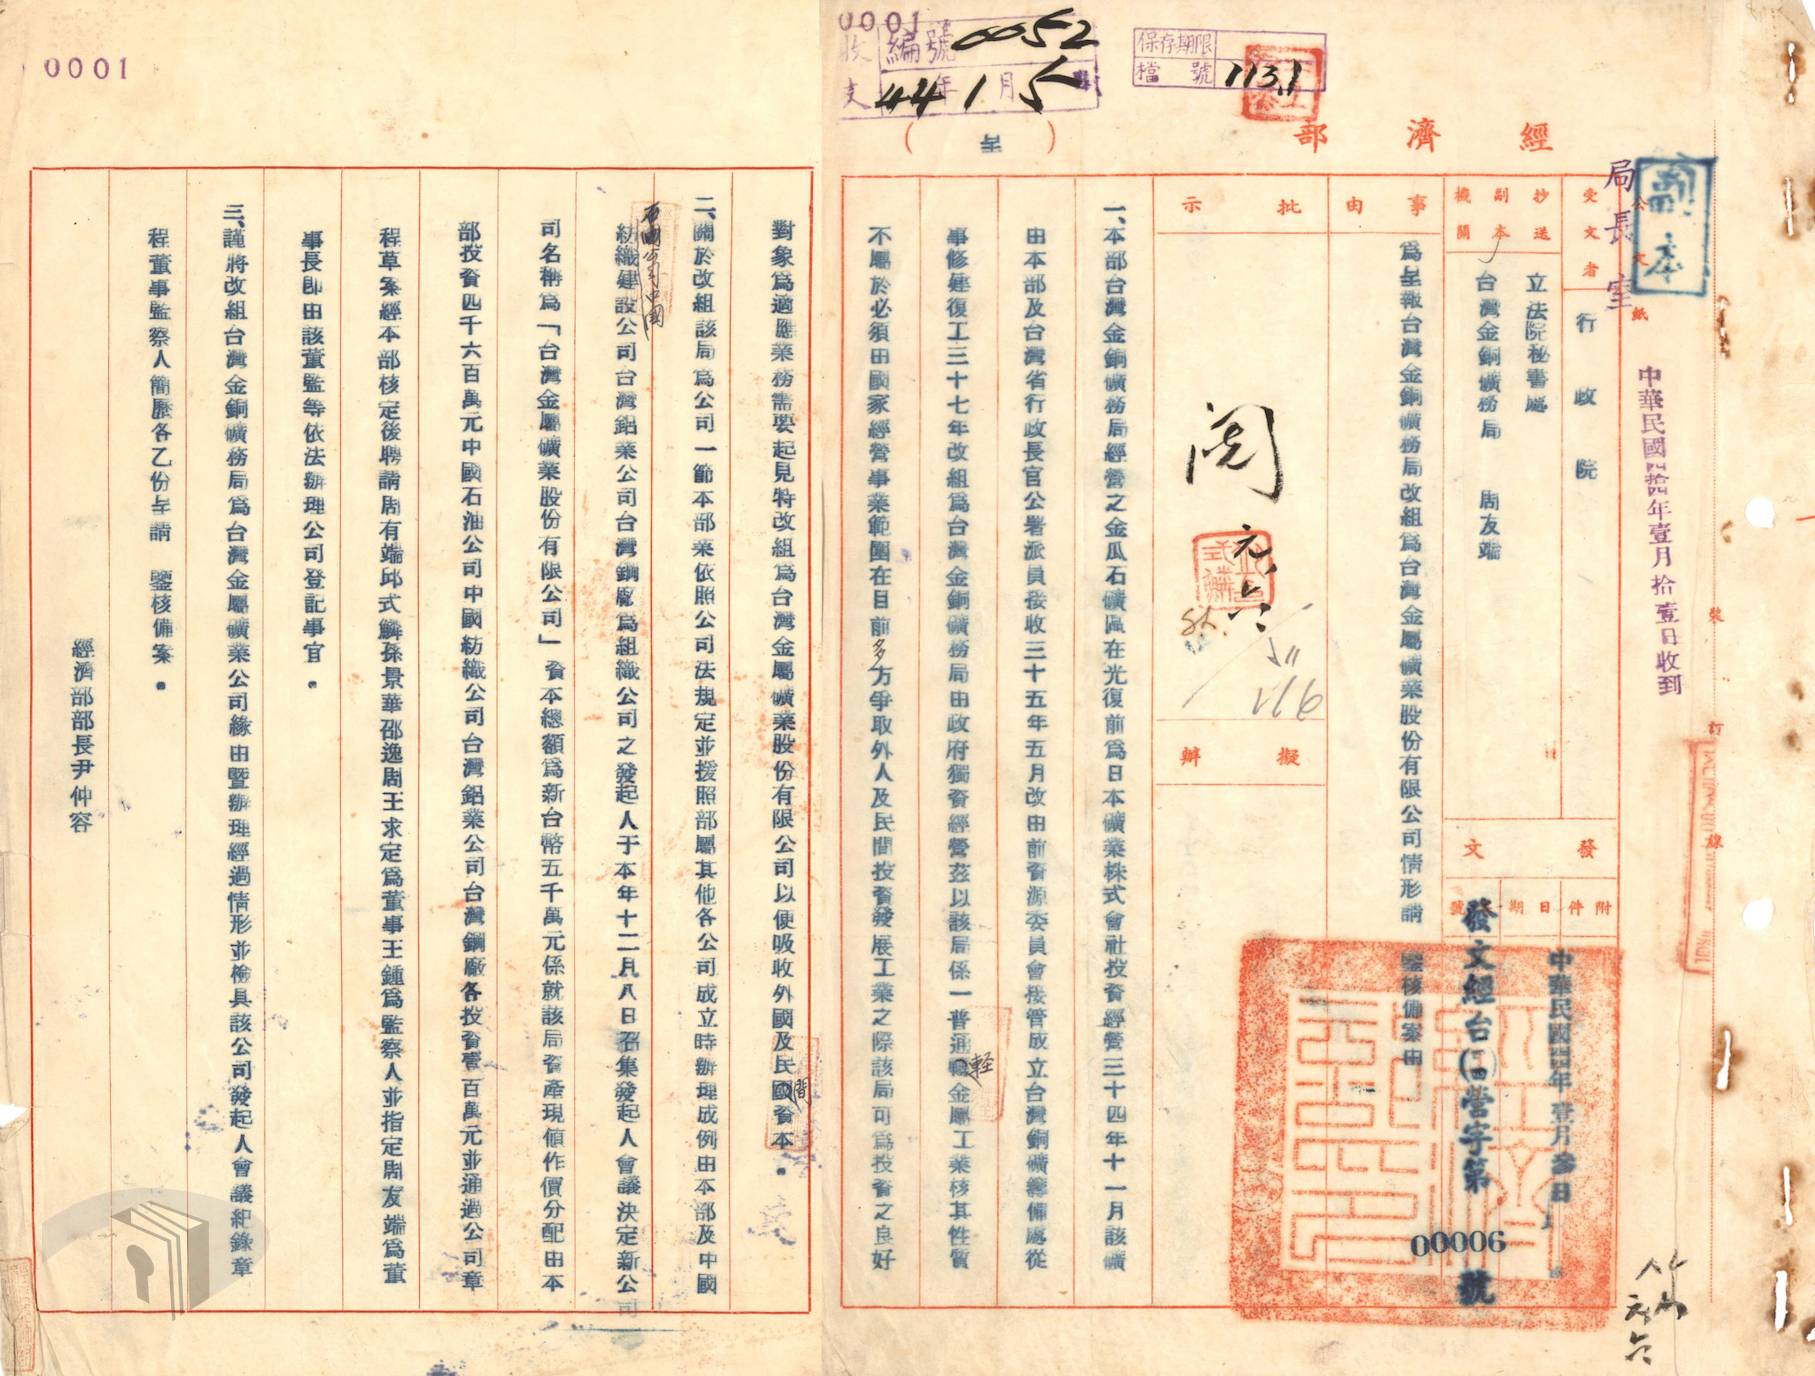 0001
收文
編號 0052
44年1月5
保存期限
檔號 113.1
經濟部
(呈)
副本
局長室
公文紙
中華民國四拾四年壹月拾壹日收到
裝訂線
受文者
行政院
抄送副本機關
立法院秘書處
台灣金銅礦務局 周友端
發文
附件
日期
號
中華民國四四年壹月參日
發文經台(四四)營字第
00006
號
事由
為呈報台灣金銅礦務局改組為台灣金屬礦業股份有限公司情形請 鑒核備案由
批示
閱
元六
擬辦
一、本部台灣金銅礦務局經營之金瓜石礦區在光復前為日本礦業株式會社投資經營三十四年十一月該礦
由本部及台灣省行政長官公署派員接收三十五年五月改由前資源委員會接管成立台灣銅礦籌備處從
事修建復工三十七年改組為台灣金銅礦務局由政府獨資經營茲以該局係一普通輕金屬工業核其性質
不屬於必須由國家經營事業範圍在目前多方爭取外人及民間投資發展工業之際該局可為投資之良好
0001
對象為適應業務需要起見特改組為台灣金屬礦業股份有限公司以便吸收外國及民間資本。
二、關於改組該局為公司一節本部業依照公司法規定並援照部屬其他各公司成立時辦理成例由本部及中國
石油公司中國
紡織建設公司台灣鋁業公司台灣鋼廠為組織公司之發起人于本年十二月八日召集發起人會議決定新公司
司名稱為「台灣金屬礦業股份有限公司」資本總額為新台幣五千萬元係就該局資產現值作價分配由本
部投資四千六百萬元中國石油公司中國紡織公司台灣鋁業公司台灣鋼廠各投資壹百萬元並通過公司章
程草案經本部核定後聘請周有端邱式麟孫景華邵逸周王求定為董事王鍾為監察人並指定周友端為董
事長即由該董監等依法辦理公司登記事宜。
三、謹將改組台灣金銅礦務局為台灣金屬礦業公司緣由暨辦理經過情形並檢具該公司發起人會議紀錄章
程董事監察人簡歷各乙份呈請 鑒核備案。
經濟部部長尹仲容